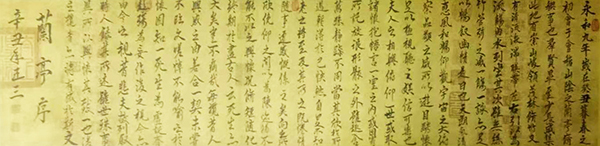 永和九年歲在癸丑暮春之
初會于會稽山陰之蘭亭脩
禊事也羣賢畢至少長咸集
此地有崇山峻領茂林脩竹又
有清流激湍暎帶左右引以為
流觴曲水列坐其次雖無絲
竹管弦之盛一觴一詠亦足
以暢叙幽情是日也天朗氣清
惠風和暢仰觀宇宙之大俯
察品類之盛所以遊目騁懷
足以極視聽之娛信可樂也
夫人之相與俯仰一世或取
諸懷抱悟言一室之內或因寄
所託放浪形骸之外雖趣舍
萬殊靜躁不同當其欣於所
遇暫得於己快然自足不知
老之將至及其所之既惓情
隨事遷感慨係之矣向之所
欣俛仰之間以為陳迹猶不
能不以之興懷況脩短隨化
終期於盡古人云死生亦
大矣豈不痛哉每攬昔人
興感之由若合一契未嘗
不臨文嗟悼不能喻之於
懷固知一死生為虛誕齊
彭殤為妄作後之視今亦
由今之視昔悲夫故列叙
時人錄其所述雖世殊事
異所以興懷其致一也後
之攬者亦將有感於斯文
蘭亭序
辛丑年正三